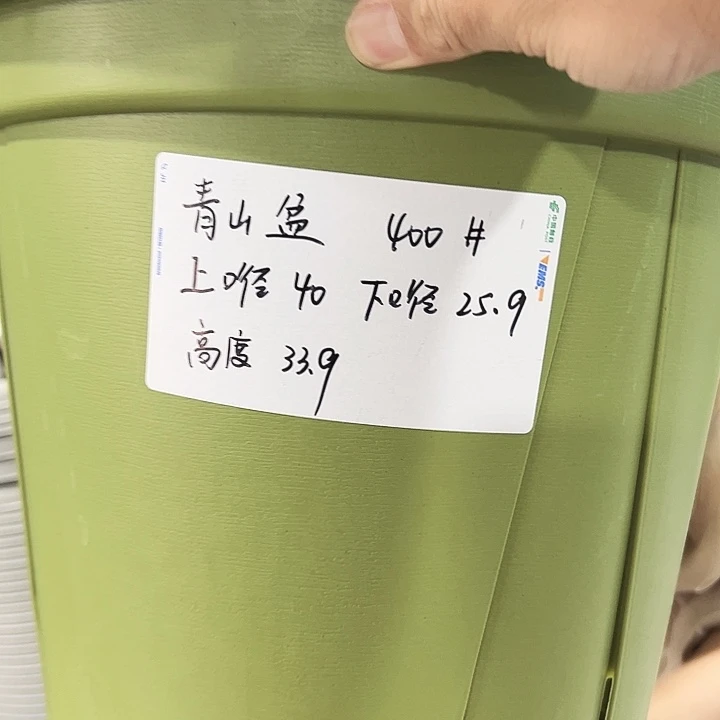 青山盆 400#
上口径 40 下口径 25.9
高度 33.9
中国邮政
EMS